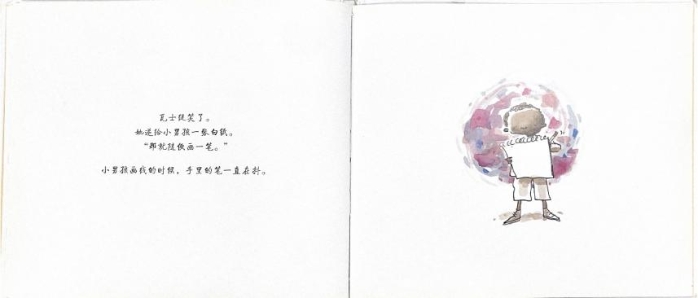 瓦士缇笑了。
她递给小男孩一张白纸。
“那就随便画一笔。”
小男孩画线的时候，手里的笔一直在抖。